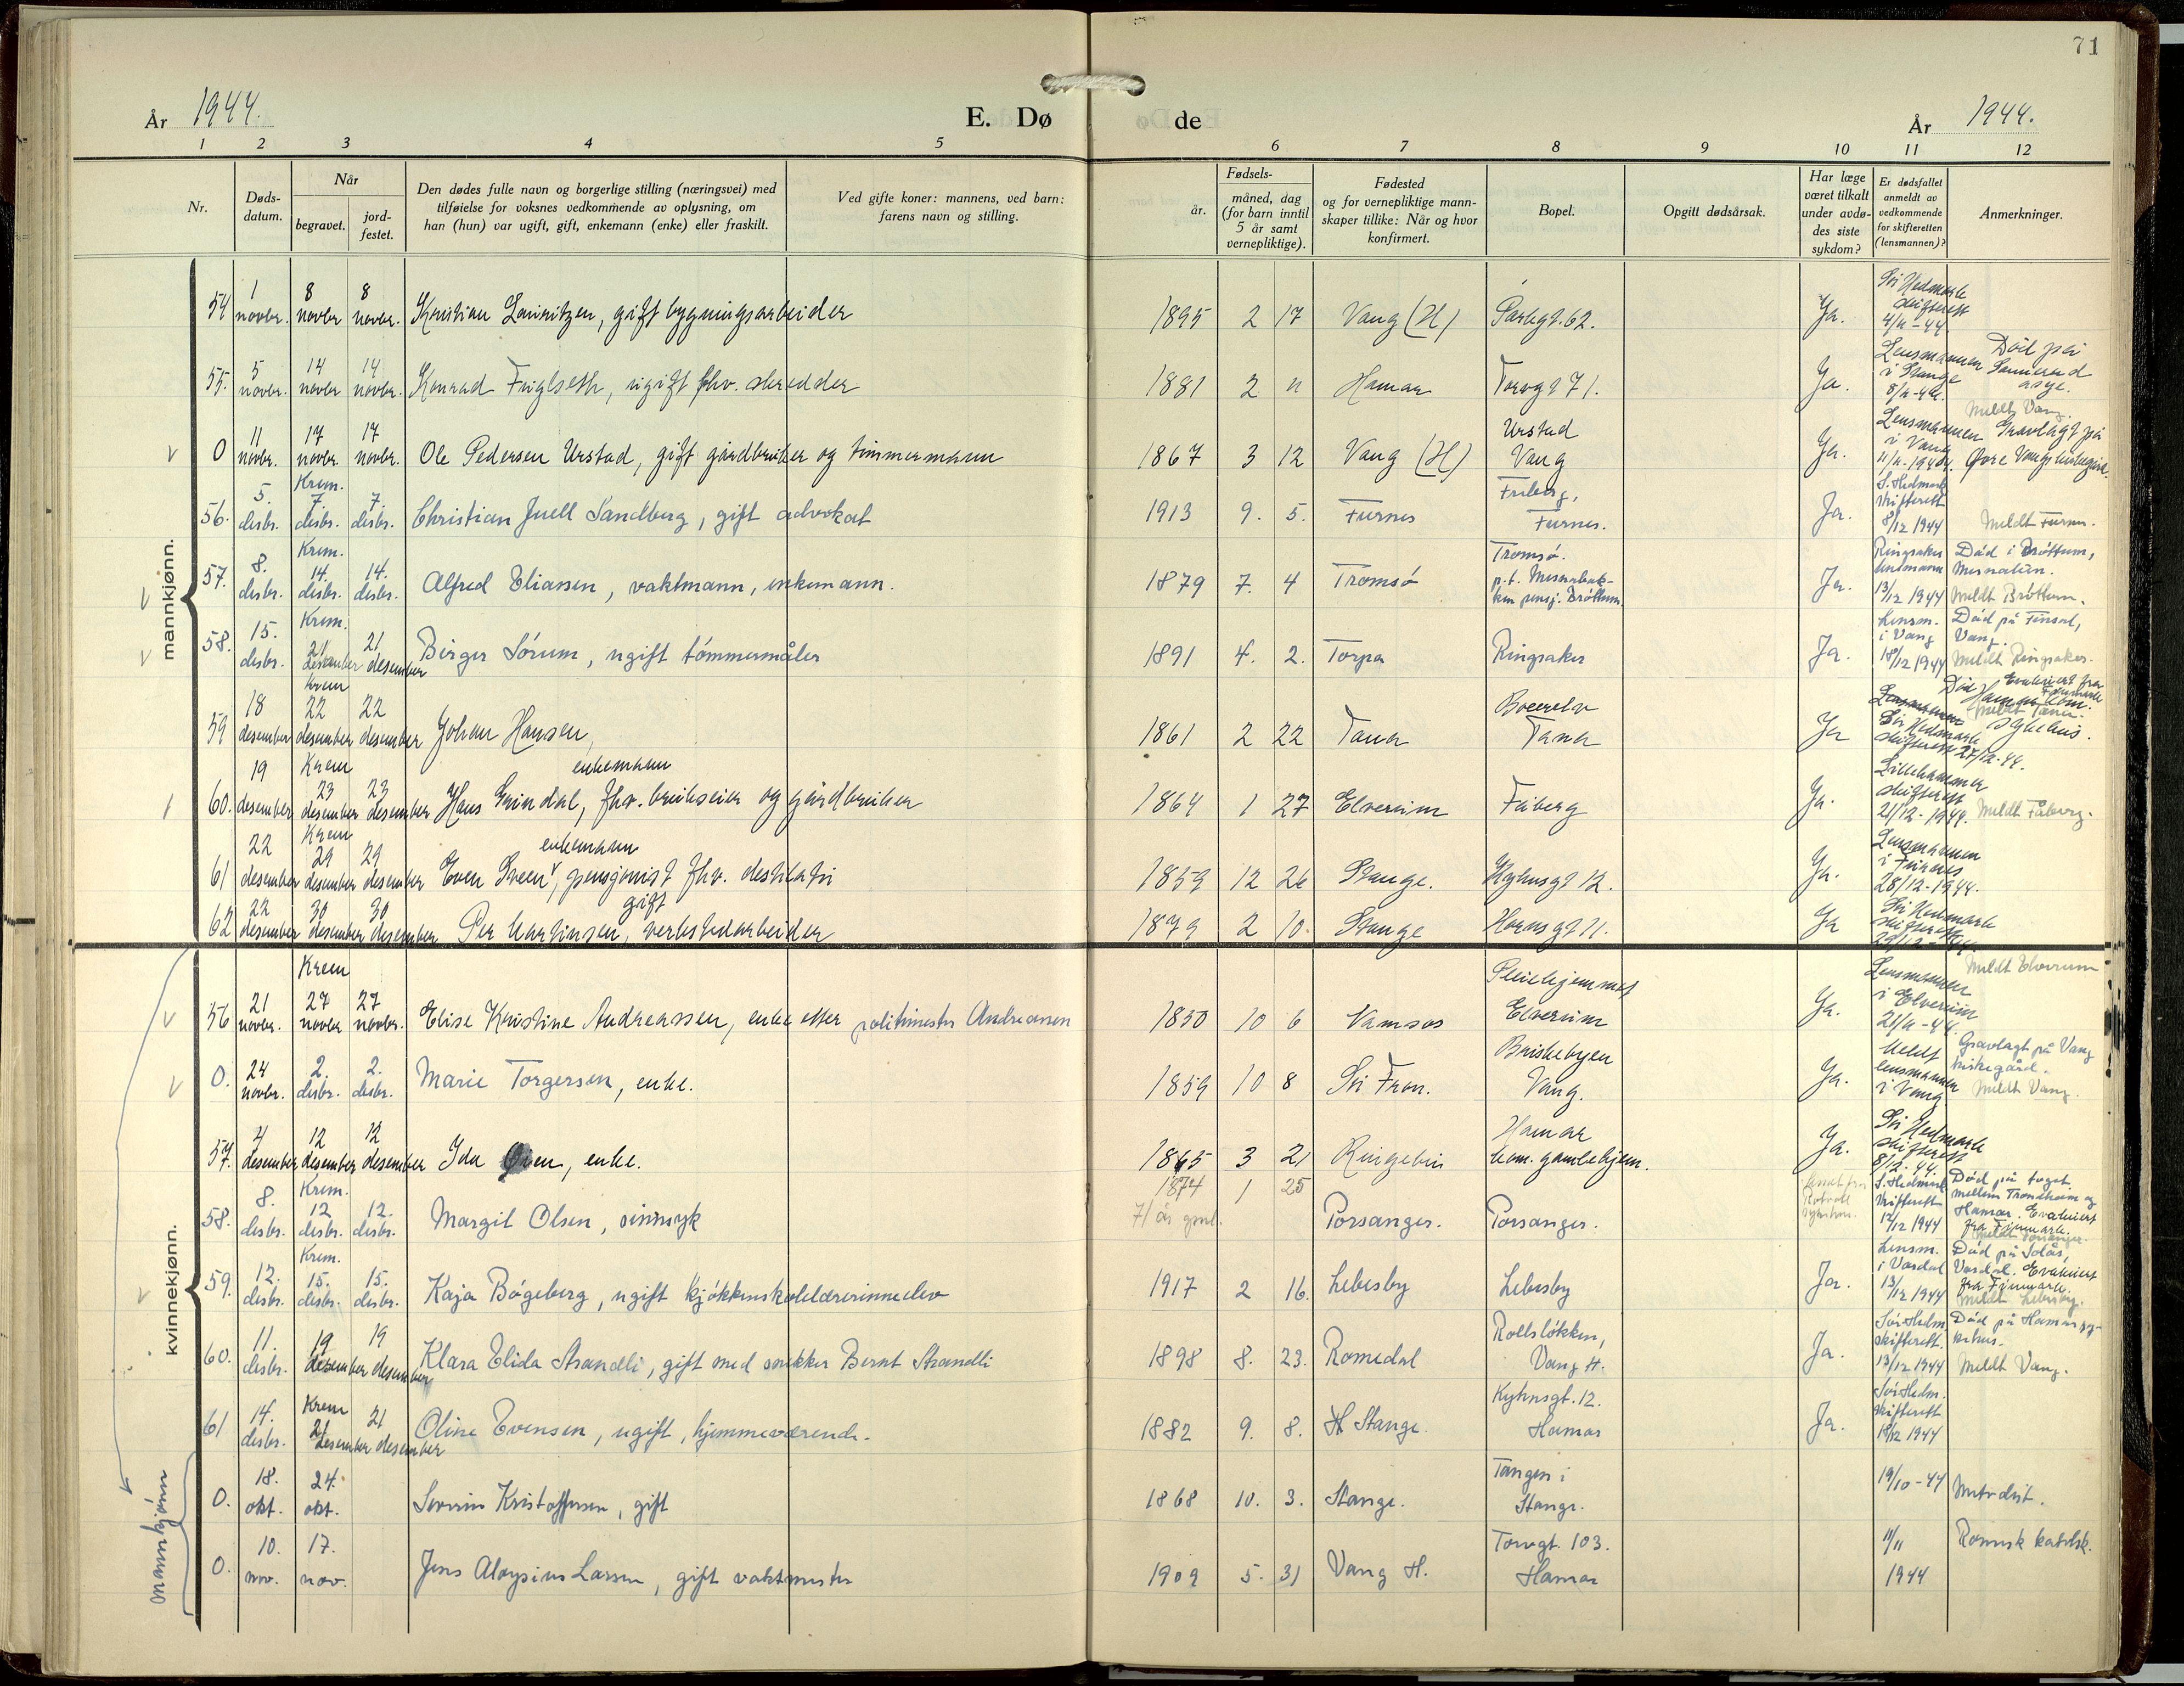 71
År 1944. E. Dø de År 1944.
1 2 3 4 5 6 7 8 9 10 11 12
Nr.
Døds-
datum.
Når
begravet.
jord-
festet.
Den dødes fulle navn og borgerlige stilling (næringsvei) med
tilføielse for voksnes vedkommende av oplysning, om
han (hun) var ugift, gift, enkemann (enke) eller fraskilt.
Ved gifte koner: mannens, ved barn:
farens navn og stilling.
Fødsels-
år.
måned, dag
(for barn inntil
5 år samt
vernepliktige).
Fødested
og for vernepliktige mann-
skaper tillike: Når og hvor
konfirmert.
Bopel.
Opgitt dødsårsak.
Har læge
været tilkalt
under avdø-
des siste
sykdom?
Er dødsfallet
anmeldt av
vedkommende
for skifteretten
(lensmannen)?
Anmerkninger.
mannkjønn.
54 1 novbr. 8 novbr 8 novbr. Kristian Lauritzen, gift bygningsarbeider 1895 2 17 Vang (H) Parkgt. 62. Ja. Sør Hedmark
skifterett
4/11-44.
55. 5 novbr. 14 novbr 14 novbr. Konrad Fuglseth, ugift fhv. skredder 1881 2 11 Hamar Torvgt 71. Ja. Lensmannen
i Stange
8/11-44. Død på
Sanderud
asyl.
0 11 novbr. 17 novbr. 17 novbr. Ole Pedersen Urstad, gift gårdbruker og tømmermann 1867 3 12 Vang (H) Urstad
Vang Ja. Lensmannen
i Vang
11/11-1944. Meldt Vang.
Gravlagt på
Øvre Vang kirkegård.
56. 5. desbr. Krem. 7 desbr. 7. desbr. Christian Juell Sandberg, gift advokat 1913 9. 5. Furnes Friberg,
Furnes. Ja. S. Hedmark
skifterett
8/12 1944 Meldt Furnes.
57. 8. desbr. Krem. 14. desbr. 14. desbr. Alfred Eliassen, vaktmann, enkemann. 1879 7. 4 Tromsø Tromsø.
p.t. Mesnabak-
ken pensj. Brøttum. Ja. Ringsaker
lensmann
13/12 1944 Død i Brøttum,
Mesnalien.
Meldt Brøttum.
58. 15. desbr. Krem. 21 desember 21 desember Birger Sørum, ugift tømmermåler 1891 4. 2. Torpa Ringsaker Ja. Lensm.
i Vang
18/12 1944 Død på Finsal,
Vang.
Meldt Ringsaker.
59 18 desember Krem 22 desember 22 desember Johan Hansen, 1861 2 22 Tana
Tana Ja Lensmannen
Sør Hedmark
skifterett 27/12-44. Evakuert fra
Finnmark
Død Hamar kom.
sykehus.
Meldt Tana.
60. 19 desember Krem 23 desember 23 desember enkemann
Hans Grindal, fhv. brukseier og gårdbruker 1864 1 27 Elverum Fåberg Ja. Lillehammer
skifterett
21/12-1944. Meldt Fåberg.
61 22 desember Krem 29 desember 29 desember enkemann
Even Sveen, pensjonist fhv. destilatør 1859 12 26 Stange. Kyhnsgt 12. Ja. Lensmannen
i Furnes
28/12-1944.
62 22 desember 30 desember 30 desember gift
Per Martinsen, verkstedarbeider 1879 2 10. Stange Hornsgt 11. Ja Sør Hedmark
skifterett
kvinnekjønn.
56 21 novbr. Krem 27 novbr 27 novbr. Elise Kristine Andreassen, enke etter politimester Andreassen 1850 10 6 Namsos Pleiehjemmet
Elverum Ja. Lensmannen
i Elverum
21/11-44. Meldt Elverum
0. 24 novbr. 2. desbr. 2. desbr. Marie Torgersen, enke. 1859 10 8 Sør Fron. Briskebyen
Vang. Ja. Meldt
lensmannen
i Vang Gravlagt på Vang
kirkegård.
Meldt Vang.
57. 4 desember 12 desember 12 desember Ida Øien, enke. 1865 3 21 Ringebu Hamar
kom. gamlehjem. Ja. Sør Hedmark
skifterett
8/12-44.
58. 8. desbr. Krem. 12 desbr. 12. desbr. Margit Olsen, sinnsyk 1874 1 25
71 år gml. Porsanger. Porsanger. S. Hedmark
skifterett
12/12 1944 Død på toget
mellem Trondheim og
Hamar. Evakuert
fra Finnmark.
Meldt Porsanger.
59. 12. desbr. Krem. 15. desbr. 15. desbr. Kaja Bøgeberg, ugift kjøkkenskolelærerinneelev 1917 2 16. Lebesby Lebesby Ja. Lensm.
i Vardal
13/12 1944 Død på Solås,
Vardal. Evakuert
fra Finnmark.
Meldt Lebesby.
60. 11. desbr. 19 desember 19 desember Klara Elida Strandli, gift med snekker Bernt Strandli 1898 8. 23. Romedal Rollsløkken,
Vang H. Ja. Sør Hedm.
skifterett.
13/12 1944 Død på Hamar sy-
kehus.
Meldt Vang.
61 14. desbr. Krem 21 desember 21 desember Oline Evensen, ugift, hjemmeværende. 1882 9. 8. Stange. Kyhnsgt. 12.
Hamar Ja. Sør Hedm.
skifterett
18/12 1944
mannkjønn
0. 18. okt. 24. okt. Severin Kristoffersen, gift 1868 10. 3. Stange. Tangen i
Stange. 19/10-44 Metodist.
0. 10. nov. 17. nov. Jens Aloysius Larsen, gift vaktmester 1909 5. 31 Vang H. Torvgt. 103.
Hamar 11/11
1944 Romersk katolsk.